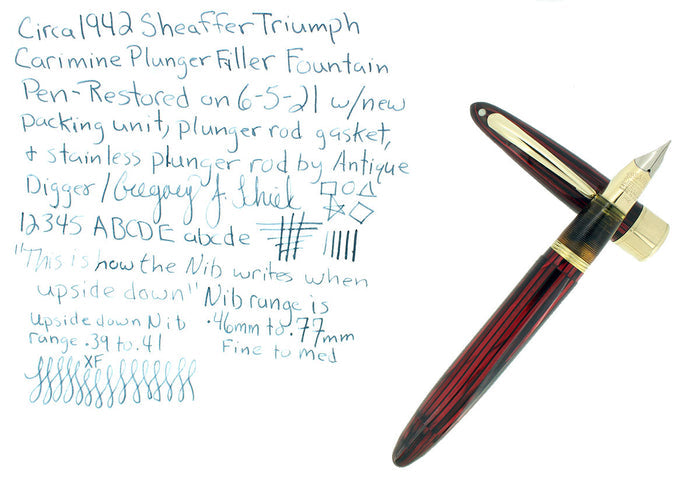 Circa 1942 Sheaffer Triumph
Carimine Plunger Filler Fountain
Pen-Restored on 6-5-21 w/new
packing unit, plunger rod gasket,
& stainless plunger rod by Antique
Digger / Gregory J
12345 ABCDE abcde
"This is how the Nib writes when
upside down" Nib range is
.46mm to .77mm
Fine to med
Upside down Nib
range .39 to .41
XF